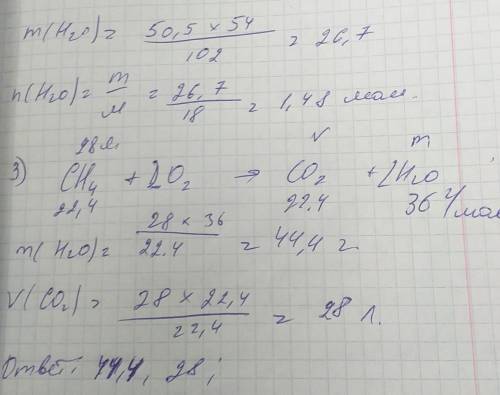 m(H₂O) = 50,5 × 54 / 102 = 26,7
n(H₂O) = m/M = 26,7/18 = 1,48 мол.
28л V m
3) CH₄ + 2O₂ → CO₂ + 2H₂O
22,4 22.4 36 г/мол
m(H₂O) = 28 × 36 / 22.4 = 44,4 г
V(CO₂) = 28 × 22,4 / 22,4 = 28 л.
Ответ: 44,4, 28;